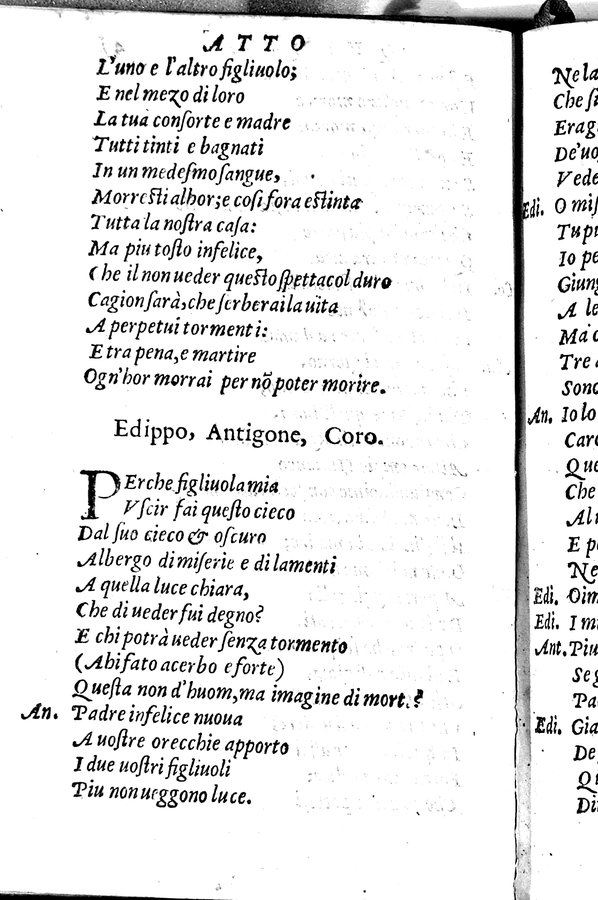 ATTO
L'uno e l'altro figliuolo;
E nel mezo di loro
La tua conſorte e madre
Tutti tinti e bagnati
In un medeſmo ſangue,
Morreſti alhor; e coſi fora eſtinta
Tutta la noſtra caſa:
Ma piu toſto infelice,
Che il non ueder queſto ſpettacol duro
Cagion ſarà, che ſerberai la uita
A perpetui tormenti:
E tra pena, e martire
Ogn'hor morrai per nō poter morire.
Edippo, Antigone, Coro.
PErche figliuola mia
Vſcir fai queſto cieco
Dal ſuo cieco & oſcuro
Albergo di miſerie e di lamenti
A quella luce chiara,
Che di ueder fui degno?
E chi potrà ueder ſenza tormento
(Ahi fato acerbo e forte)
Queſta non d'huom, ma imagine di morte?
An. Padre infelice nuoua
A uoſtre orecchie apporto
I due uoſtri figliuoli
Piu non ueggono luce.
Ne la
Che ſi
Erag
De'uo
Vede
Edi. O miſ
Tu pu
Io pe
Giun
A le
Ma
Tre
Sono
An. Io lo
Car
Que
Che
Al
E p
Ne
Edi. Oim
Edi. I m
Ant. Piu
Se
Pa
Edi. Gia
De
Q
Di